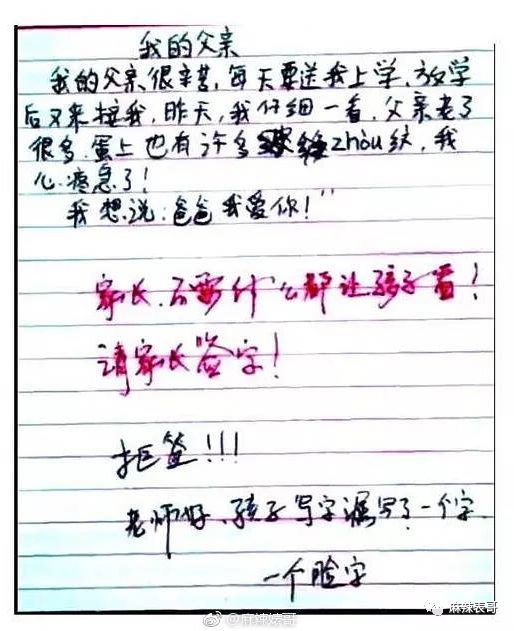 我的父亲
我的父亲很辛苦,每天要送我上学,放学
后又来接我,昨天,我仔细一看,父亲老了
很多,蛋上也有许多zhòu纹,我
心疼急了!
我想说:爸爸我爱你!"
家长,不要什么都让孩子看!
请家长签字!
拒签!!!
老师好,孩子写字漏写了一个字
一个脸字
@麻辣婊哥
麻辣表哥